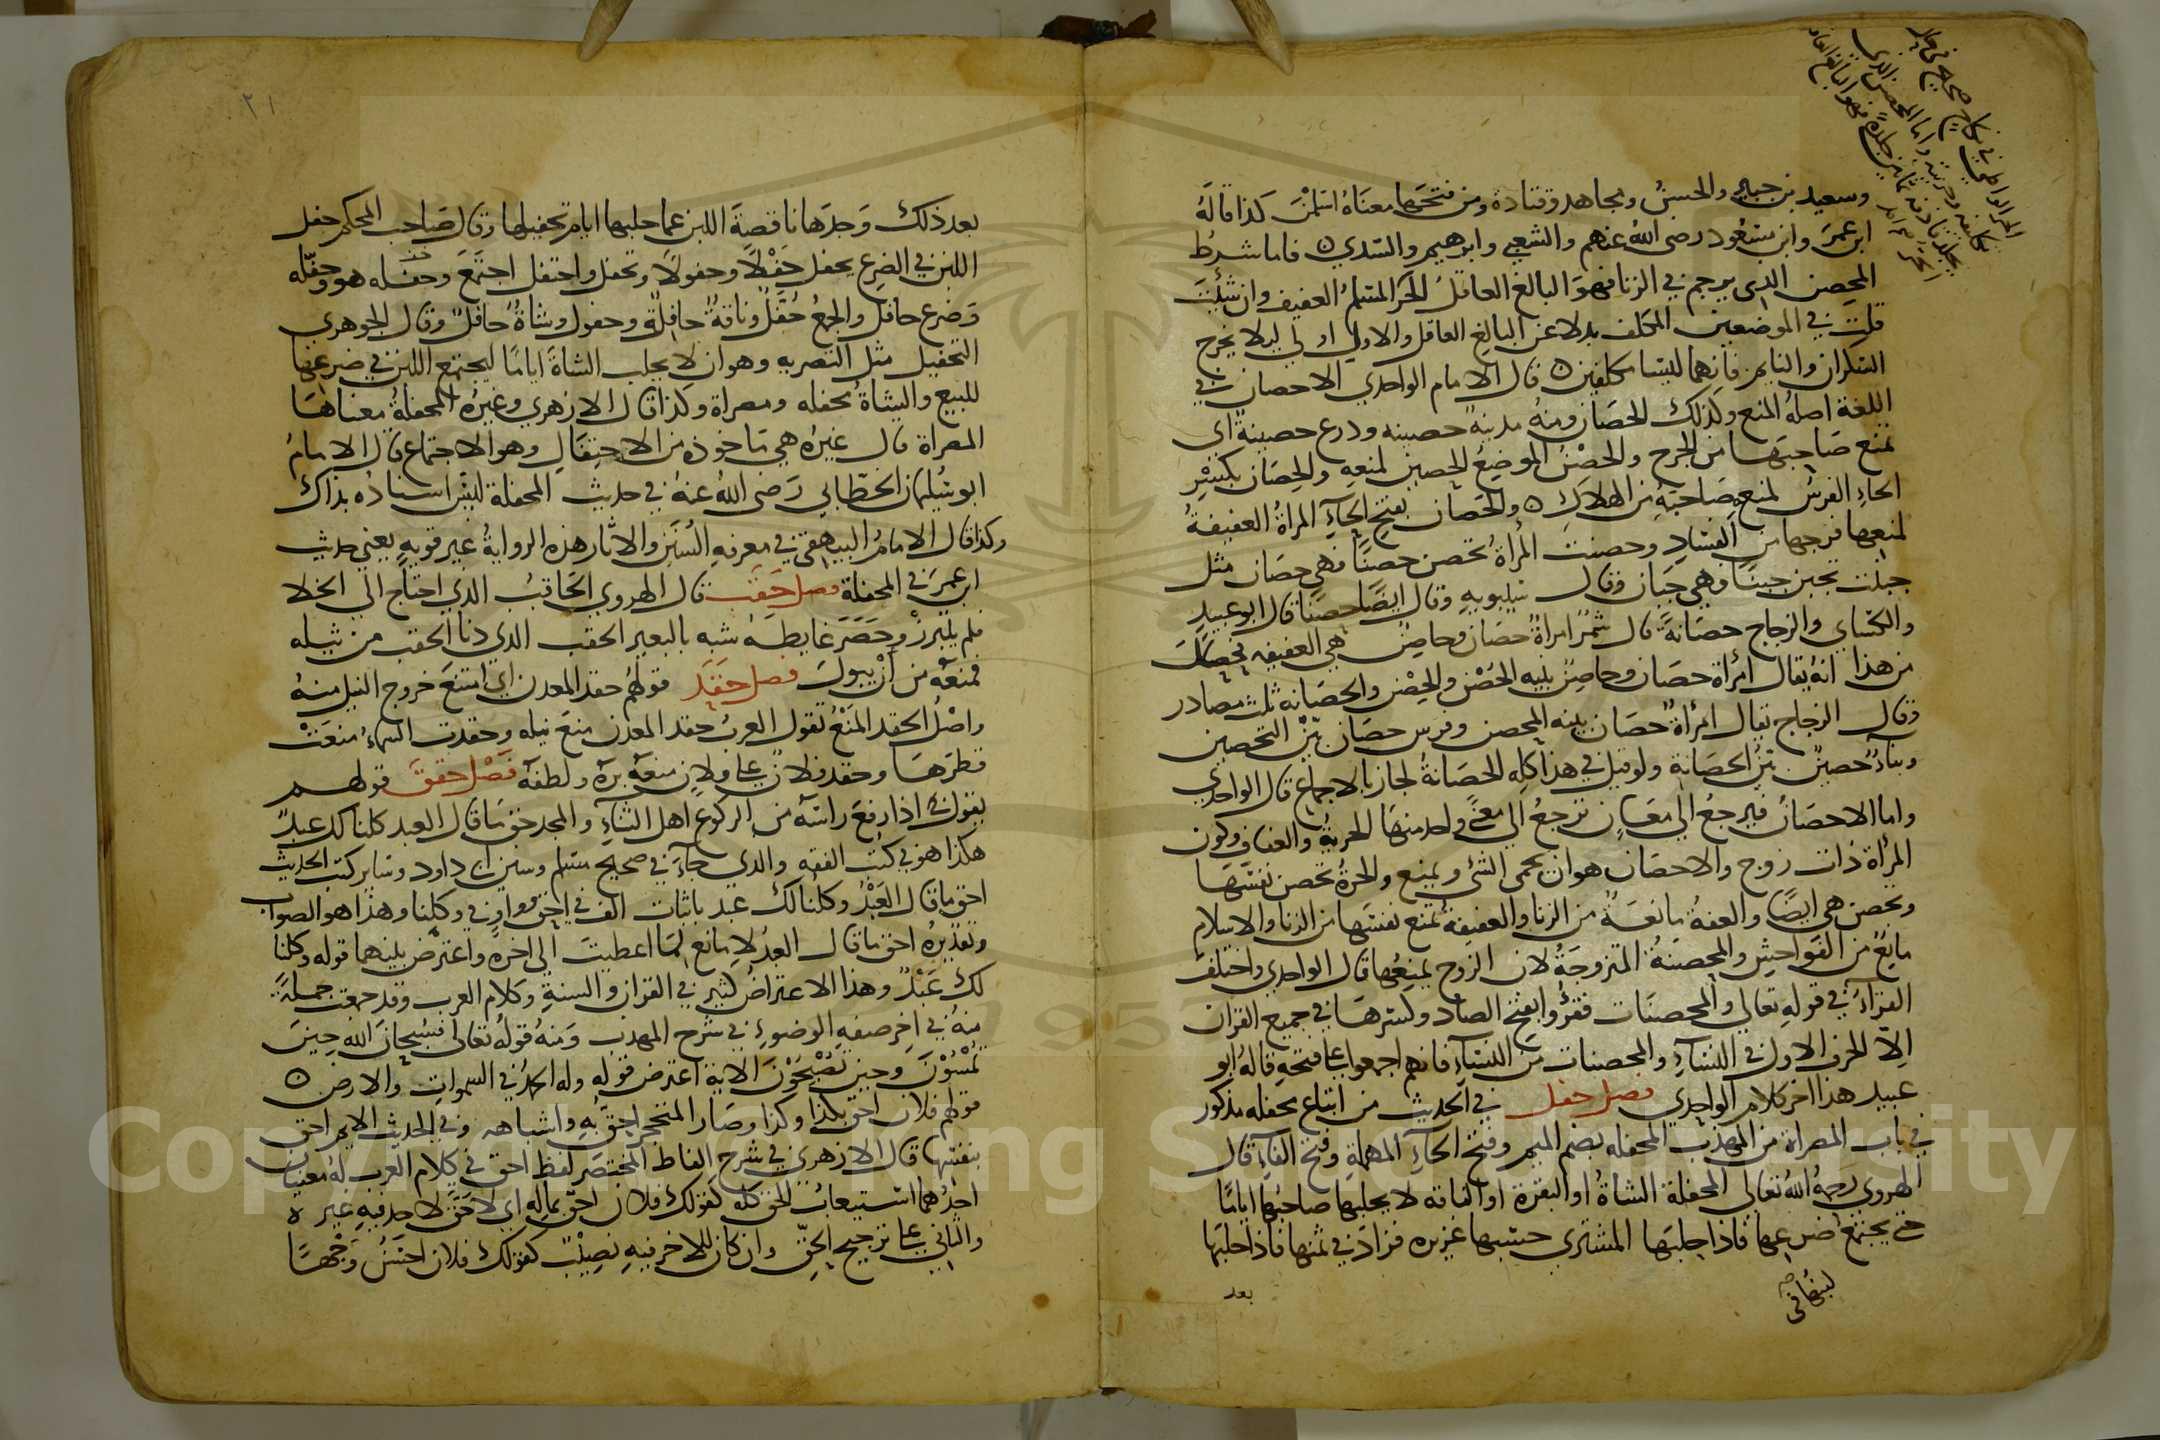 وسعيد بن جبير والحسن ومجاهد وقتادة ومن فتحها معناه اسلمن كذا قاله
ابن عمر وابن مسعود رضى الله عنهم والشعبي وابرهيم والسدي ٥ فاما شرط
المحصن الذى يرجم في الزنا فهو البالغ العاقل الحر المسلم العفيف وان شئت
قلت في الموضعين المكلف بدلا عن البالغ العاقل والاول اولى ليلا يخرج
السكران والنايم فانهما ليسا مكلفين ٥ قال الامام الواحدي الاحصان في
اللغة اصله المنع وكذلك الحصان ومنه مدينة حصينه ودرع حصينة اى
تمنع صاحبها من الجرح والحصن الموضع الحصين لمنعه والحصان بكسر
الحاء الفرس لمنعه صاحبه من الهلاك ٥ والحصان بفتح الحاء المراة العفيفة
لمنعها فرجها من الفساد وحصنت المرأة تحصن حصنا فهي حصان مثل
جبنت تجبن جبنا وهي جبان وقال سيبويه وقال ايضا حصنا قال ابو عبيد
والكساي والزجاج حصانة قال شمر امراة حصان وحاصن هي العفيفه فحصل
من هذا انه يقال امرأة حصان وحاصن بينه الحصن والحصن والحصانه ثلث مصادر
وقال الزجاج يقال امرأة حصان بينه الحصن وفرس حصان بين التحصين
وبناء حصين بين الحصانة ولو قيل في هذا كله الحصانة لجاز بالاجماع قال الواحدي
واما الاحصان فيرجع الى معان ترجع الى معنى واحد منها الحرية والعفاف وكون
المرأة ذات زوج والاحصان هو ان يحمى الشئ ويمنع والحرة تحصن نفسها
وتحصن هي ايضا والعفة مانعة من الزنا والعفيفة تمنع نفسها من الزنا والاسلام
مانع من الفواحش والمحصنة المتزوجة لان الزوج يمنعها قال الواحدي واختلف
القراء في قوله تعالى والمحصنات فقرؤا بفتح الصاد وكسرها في جميع القران
الا الحرف الاول في النساء والمحصنات من النساء فانهم اجمعوا على فتحه قاله ابو
عبيد هذا اخر كلام الواحدي فصل حفل في الحديث من ابتاع محفله مذكور
في باب المصراة من المهذب المحفله بضم الميم وفتح الحاء المهملة وفتح الفاء قال
الهروي رحمه الله تعالى المحفلة الشاة او البقرة او الناقه لا يحلبها صاحبها اياما
حتى يجتمع ضرعها فاذا حلبها المشترى حسبها غزيره فزاد في ثمنها فاذا حلبها
لبنها في
بعد
٢١
بعد ذلك وجدها ناقصة اللبن عما حلبها ايام تحفيلها وقال صاحب المحكم حفل
اللبن في الضرع يحفل حفلا وحفولا وتحفل واحتفل اجتمع وحفله هو وحفله
وضرع حافل والجمع حفل وناقة حافلة وحفول وشاة حافل وقال الجوهري
التحفيل مثل التصريه وهو ان لا يحلب الشاة اياما ليجتمع اللبن في ضرعها
للبيع والشاة محفله ومصراة وكذا قال الازهري وغيره المحفلة معناها
المصراة قال غيره هي ماخوذة من الاحتفال وهو الاجتماع قال الامام
ابو سليمان الخطابي رضى الله عنه في حديث المحفلة ليس اسناده بذاك
وكذا قال الامام البيهقي في معرفه السنن والاثار هذه الرواية غير قويه يعني حديث
ابن عمر في المحفلة فصل حقب قال الهروي الحاقب الذي احتاج الى الخلا
فلم يتبرز وحصر غايطه شبه بالبعير الحقب الذي دنا الحقب من ثيله
فمنعه من ان يبول فصل حقد قولهم حقد المعدن اي امتنع خروج النيل منه
واصل الحقد المنع تقول العرب حقد المعدن منع نيله وحقدت السماء منعت
قطرها وحقد فلان على فلان منعه بره ولطفه فصل حقق قولهم
يقول في اذا رفع راسه من الركوع اهل الثناء والمجد حق ما قال العبد كلنا لك عبد
هكذا هو في كتب الفقه والذي جاء في صحيح مسلم وسنن ابي داود وسائر كتب الحديث
احق ما قال العبد وكلنا لك عبد باثبات الف في احق وواو في وكلنا وهذا هو الصواب
وتقديره احق ما قال العبد لا مانع لما اعطيت الى اخره واعترض بينهما قوله وكلنا
لك عبد وهذا الاعتراض كثير في القران والسنة وكلام العرب وقد جمعت جملة
منه في اخر صفه الوضوء في شرح المهذب ومنه قوله تعالى فسبحان الله حين
تمسون وحين تصبحون الاية اعترض قوله وله الحمد في السموات والارض ٥
قولهم فلان احق بكذا وكذا وصار المتحجر احق به واشباهه وفي الحديث الايم احق
بنفسها قال الازهري في شرح الفاظ المختصر لفظ احق في كلام العرب له معنيان
احدهما استيعاب الحق كله كقولك فلان احق بماله اي لا حق لاحد فيه غيره
والثاني على ترجيح الحق وان كان للاخر فيه نصيب كقولك فلان احسن وجها
Copyright © King Saud University
1957